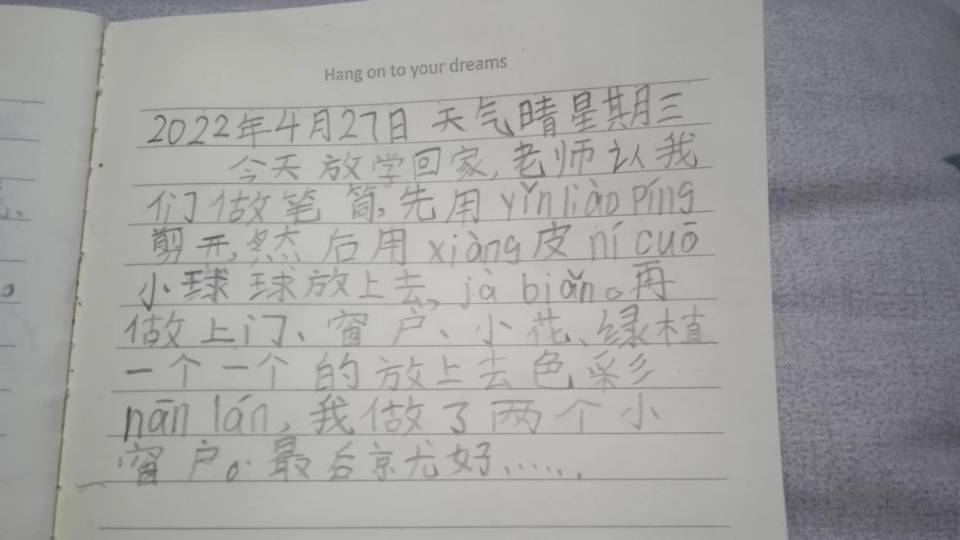 Hang on to your dreams
2022年4月27日 天气晴星期三
今天放学回家,老师认我
们做笔筒,先用yǐnliàopíng
剪开,然后用xiàng皮nícuō
小球球放上去,jà biǎn。再
做上门、窗户、小花、绿植
一个一个的放上去色彩
nān lán,我做了两个小
窗户。最后京尤好……